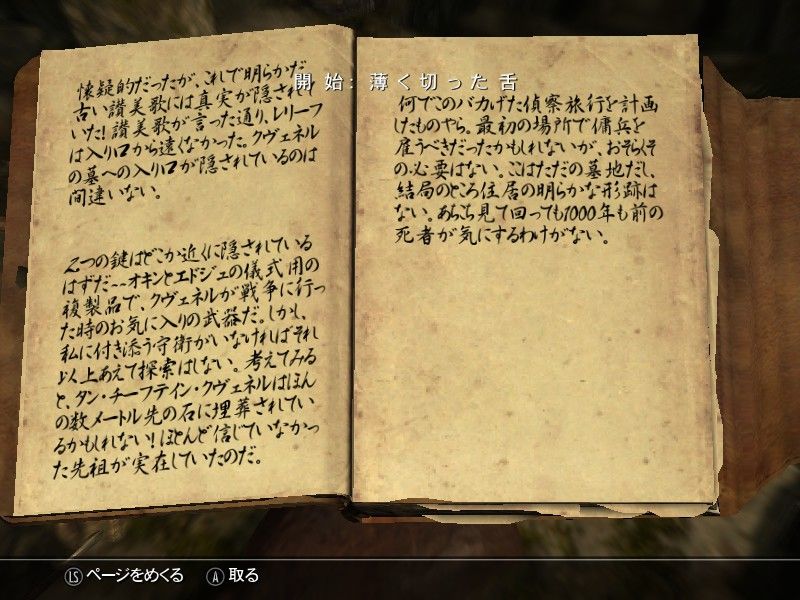 開始: 薄く切った舌
懐疑的だったが、これで明らかだ
古い讃美歌には真実が隠されて
いた！讃美歌が言った通り、レリーフ
は入り口から遠くなかった。クヴェネル
の墓への入り口が隠されているのは
間違いない。
2つの鍵はどこか近くに隠されている
はずだ--オキンとエドジェの儀式用の
複製品で、クヴェネルが戦争に行っ
た時のお気に入りの武器だ。しかし、
私に付き添う守衛がいなければそれ
以上あえて探索はしない。考えてみる
と、タン・チーフテイン・クヴェネルはほん
の数メートル先の石に埋葬されてい
るかもしれない！ほとんど信じていなかっ
た先祖が実在していたのだ。
何でこのバカげた偵察旅行を計画
したものやら。最初の場所で傭兵を
雇うべきだったかもしれないが、おそらくそ
の必要はない。ここはただの墓地だし、
結局のところ住居の明らかな形跡は
ない。あちこち見て回っても1000年も前の
死者が気にするわけがない。
LS ページをめくる A 取る